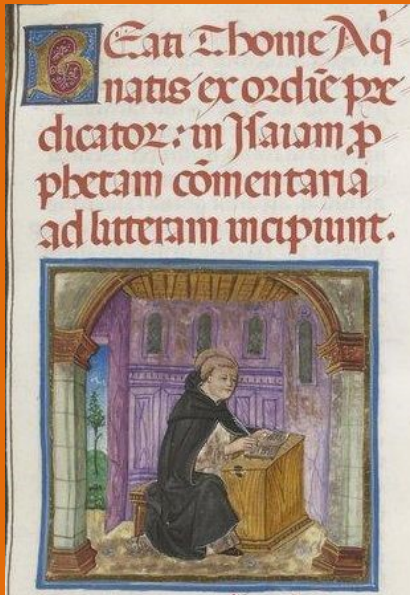 Beati Thome Aq̇
natis ex ordīe pre
dicatoꝝ: in Jsaiam ꝓ
phetam cōmentaria
ad litteram incipiunt.